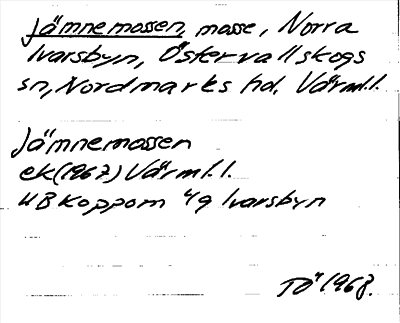 Jämnemossen, mosse, Norra
Ivarsbyn, Östervallskogs
sn, Nordmarks hd. Värml.l.
Jämnemossen
ek(1967) Värml.l.
11B Koppom 4g Ivarsbyn
TÖ 1968.